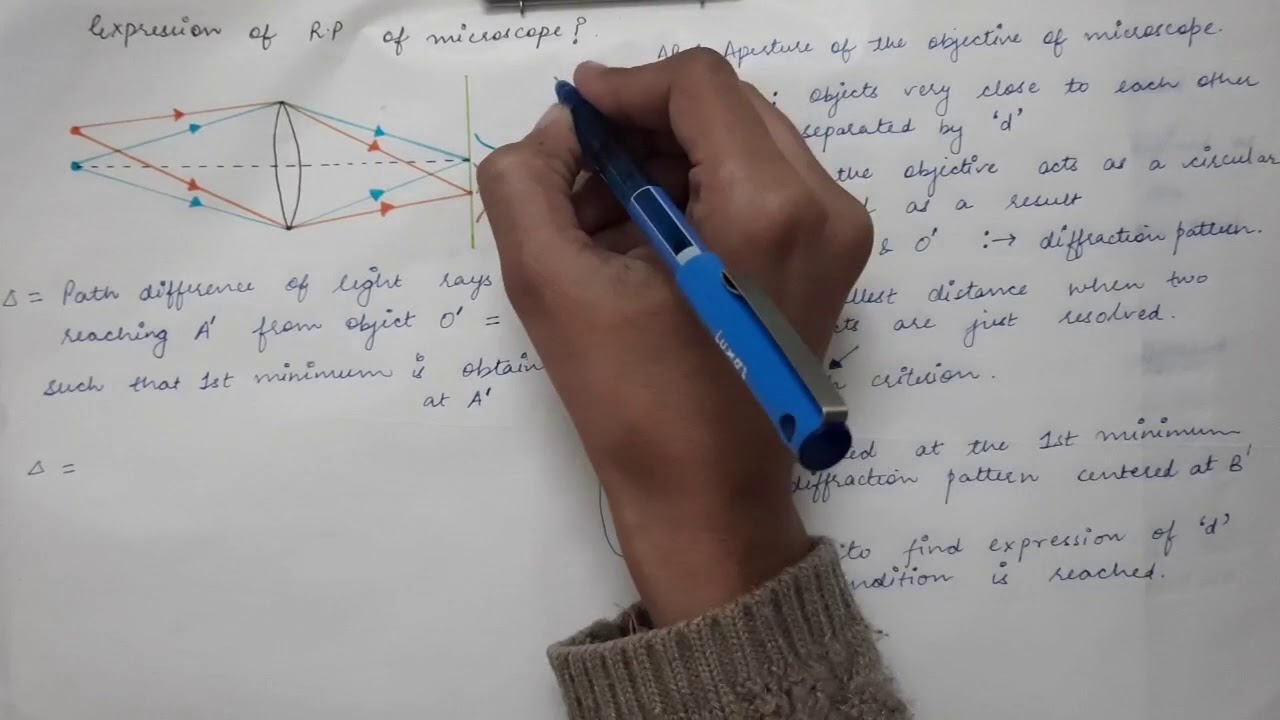 Expression of R.P of microscope?
Δ = Path difference of light rays
reaching A' from object O' =
such that 1st minimum is obtain
at A'
Δ =
Aperture of the objective of microscope.
objects very close to each other
separated by 'd'
the objective acts as a circular
as a result
& O' :→ diffraction pattern.
distance when two
are just resolved.
criterion.
at the 1st minimum
diffraction pattern centered at B'
to find expression of 'd'
is reached.
luxor